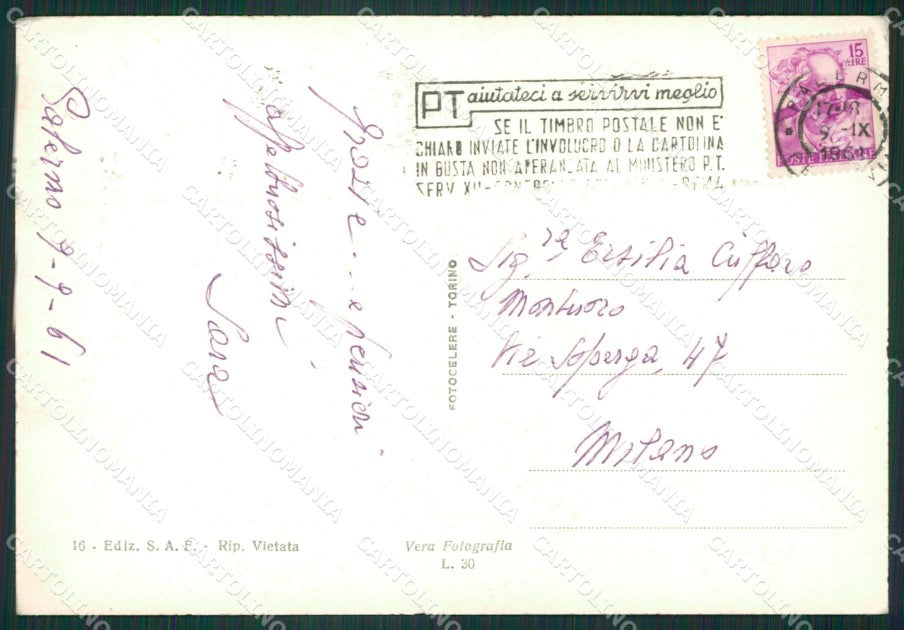 Palermo 9-9-61
Grazie... e pensieri
affettuosissimi
Sara
PT aiutateci a servirvi meglio
SE IL TIMBRO POSTALE NON È
CHIARO INVIATE L'INVOLUCRO O LA CARTOLINA
IN BUSTA NON AFFRANCATA AL MINISTERO P.T.
SERV. XII - ROMA
15
LIRE
POSTE
17-18
9 - IX
1961
Sig.ra Ersilia Cuffaro
Montuoro
Via Soperga, 47
Milano
FOTOCELERE - TORINO
16 - Ediz. S. A. F. - Rip. Vietata
Vera Fotografia
L. 30
CARTOLINOMANIA